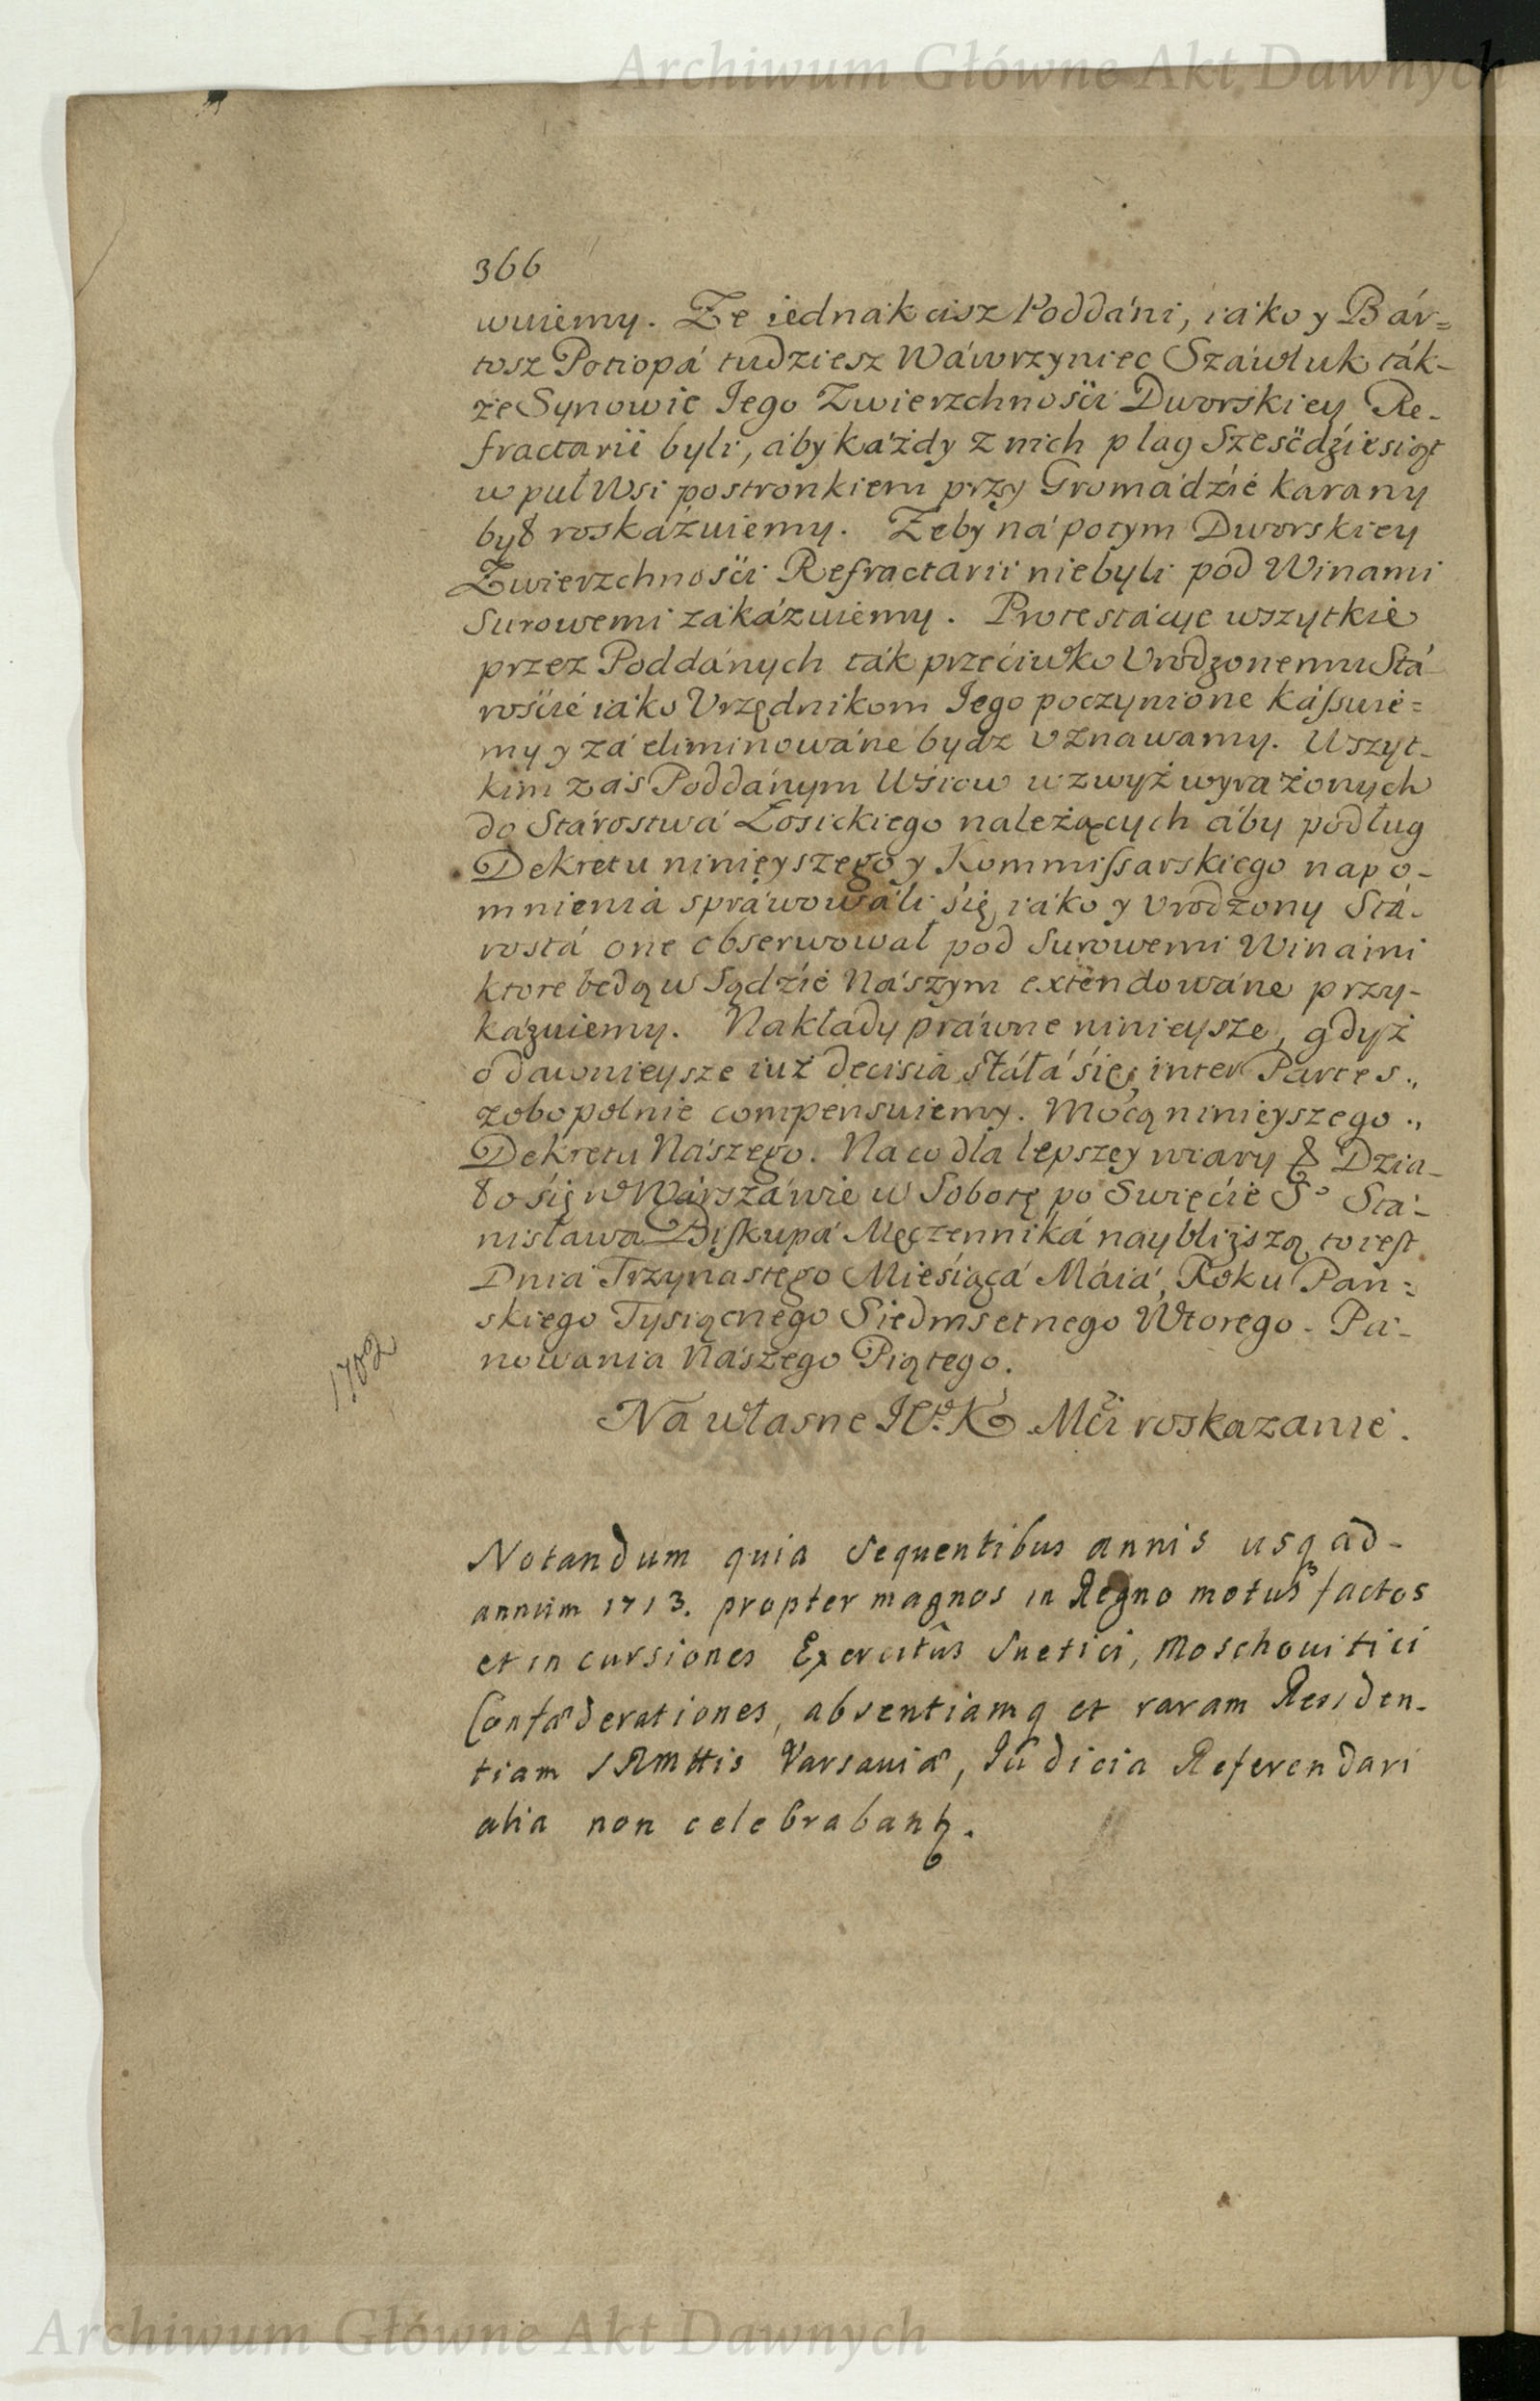 Archiwum Główne Akt Dawnych
366
wuiemy. Ze iednák cisz Poddáni, iáko y Bár=
tosz Potiopá tudziesz Wáwrzyniec Száwluk ták-
że Synowie Iego Zwierzchnośći Dworskiey Re-
fractarii byli, áby káżdy z nich plag Sześćdźiesiąt
w puł Wsi postronkiem przy Gromádźie karany
był roskázuiemy. Zeby ná potym Dworskiey
Zwierzchnośći Refractarii niebyli pod Winami
Surowemi zakázuiemy. Protestácye wszytkie
przez Poddánych ták przećiwko Urodzonemu Stá-
rośćie iáko Urzędnikom Iego poczynione kássuie=
my y zá eliminowáne bydz uznawamy. Wszyt-
kim záś Poddánym Wśiow wzwyż wyráżonych
do Stárostwá Łosickiego należących áby podług
Dekretu ninieyszego y Kommissarskiego napo-
mnienia spráwowáli się, iáko y Urodzony Stá-
rostá one obserwował pod Surowemi Winámi
ktore będą w Sądźie Nászym extendowáne przy-
kázuiemy. Nakłady práwne ninieysze, gdyż
o dawnieysze iuż decisia stáłá się, inter Partes.,
zobopolnie compensuiemy. Mocą ninieyszego.,
Dekretu Nászego. Na co dla lepszey wiary & Dzia-
ło się w Wárszáwie w Sobotę po Swięćie Sº Stá-
nisława Biskupá Męczenniká naybliższą to iest
Dnia Trzynastego Mieśiącá Máiá, Roku Pan=
skiego Tysiącnego Siedmsetnego Wtorego. Pa-
nowania Nászego Piątego.
1702
Na własne Kº Mći roskazanie.
Notandum quia sequentibus annis usq ad-
annum 1713. propter magnos in Regno motus factos
et incursiones Exercitûs Suetici, Moschovitici
Confæderationes, absentiamq et raram Residen-
tiam SRMttis Varsaviæ, Iudicia Referendari
alia non celebrabantr.
Archiwum Główne Akt Dawnych